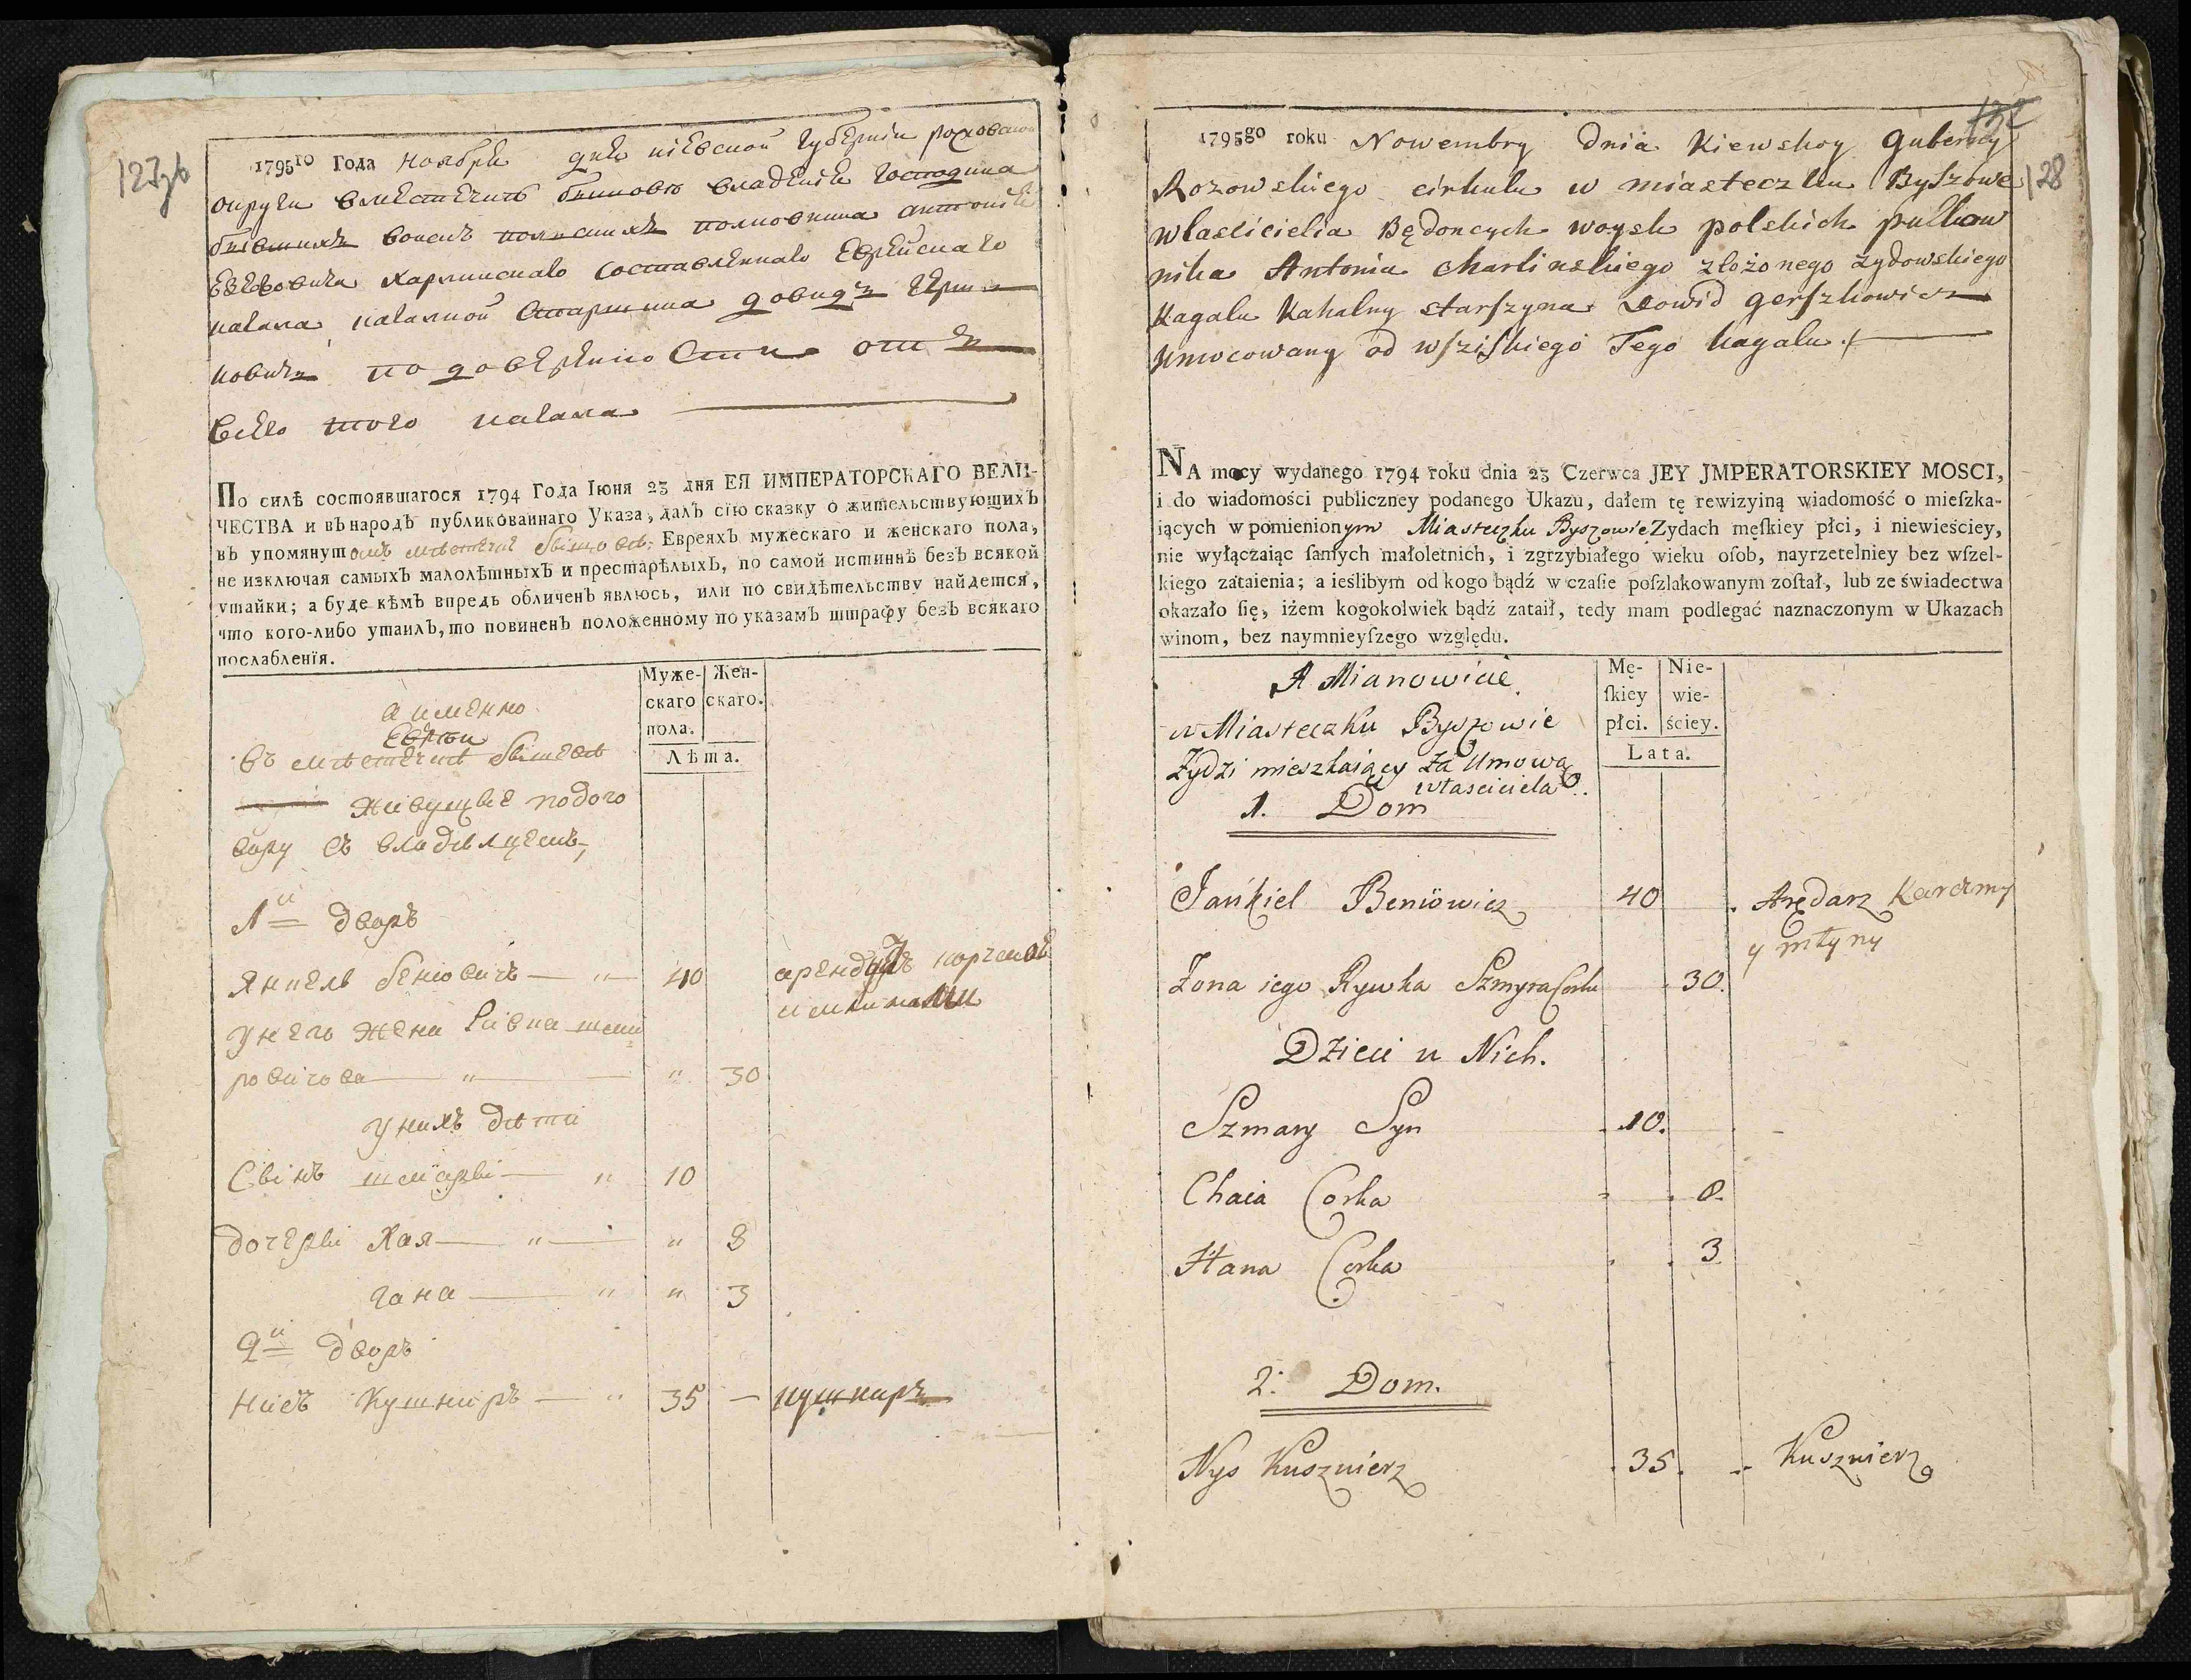 127зв
1795го Года Ноября дня Киевской Губернии
округи вместечку владения Господина
бывшихъ воискъ полскихъ полковника антония
Харлинскаго Составленнаго Еврейскаго
кагала кагалной Старшина довидъ Герш
ковичъ по доверенности отъ
всего того кагала
По силѣ состоявшагося 1794 Года Іюня 23 дня ЕЯ ИМПЕРАТОРСКАГО ВЕЛИ-
ЧЕСТВА и въ народъ публикованнаго Указа, далъ сїю сказку о жительствующихъ
въ упомянутомъ местечке бышове Евреяхъ мужескаго и женскаго пола,
не изключая самыхъ малолѣтныхъ и престарѣлыхъ, по самой истиннѣ безъ всякой
утайки; а буде кѣмъ впредь обличенъ явлюсь, или по свидѣтельству найдется,
что кого-либо утаилъ, то повиненъ положенному по указамъ штрафу безъ всякаго
послабленїя.
Муже-
скаго
пола.
Жен-
скаго.
Лѣта.
а именно
Евреи
въ местечке бышеве
живущие подого
вору съ владелцемъ,
1й дворъ
Янкель бенювичъ — " 40 арендуетъ корчмой
и мелницами
унего жена Ривка шми
ровичова — " — " 30
унихъ дети
Сынъ шмары — " 10
дочеры Хая — " — " 8
гана — " " 3
2й дворъ
Нисъ Кушниръ — " 35 — кушниръ
132
128
1795go roku Nowembry dnia Kiewskoy Gubernij
Rozowskiego cirkulu w miasteczku Byszowe
wlascicielia Będoncych woysk polskich pulkow
nika Antonia Charlinskiego złożonego żydowskiego
Kagalu Kahalny starſzyna Dowid Gerſzkowicz
Umocowany od wſziſkiego Tego kagalu
NA mocy wydanego 1794 roku dnia 23 Czerwca JEY JMPERATORSKIEY MOSCI,
i do wiadomości publiczney podanego Ukazu, dałem tę rewizyiną wiadomość o mieſzka-
iących w pomienionym Miasteczku Byszowie Zydach męſkiey płci, i niewieściey,
nie wyłączaiąc ſamych małoletnich, i zgrzybiałego wieku oſob, nayrzetelniey bez wſzel-
kiego zataienia; a ieślibym od kogo bądź w czaſie poſzlakowanym zoſtał, lub ze świadectwa
okazało ſię, iżem kogokolwiek bądź zataił, tedy mam podlegać naznaczonym w Ukazach
winom, bez naymnieyſzego względu.
Mę-
ſkiey
płci.
Nie-
wie-
ściey.
Lata.
A Mianowicie
w Miasteczku Byszowie
Żydzi mieszkaiący Za Umową
własciciela
1. Dom
Jankiel Beniowicz 40 Arędarz Karczmy
y młyny
Żona iego Rywka Szmyra Corka 30.
Dzieci u Nich.
Szmary Syn 10.
Chaia Corka 8.
Hana Corka 3
2. Dom.
Nys Kusznierz 35. Kusznierz